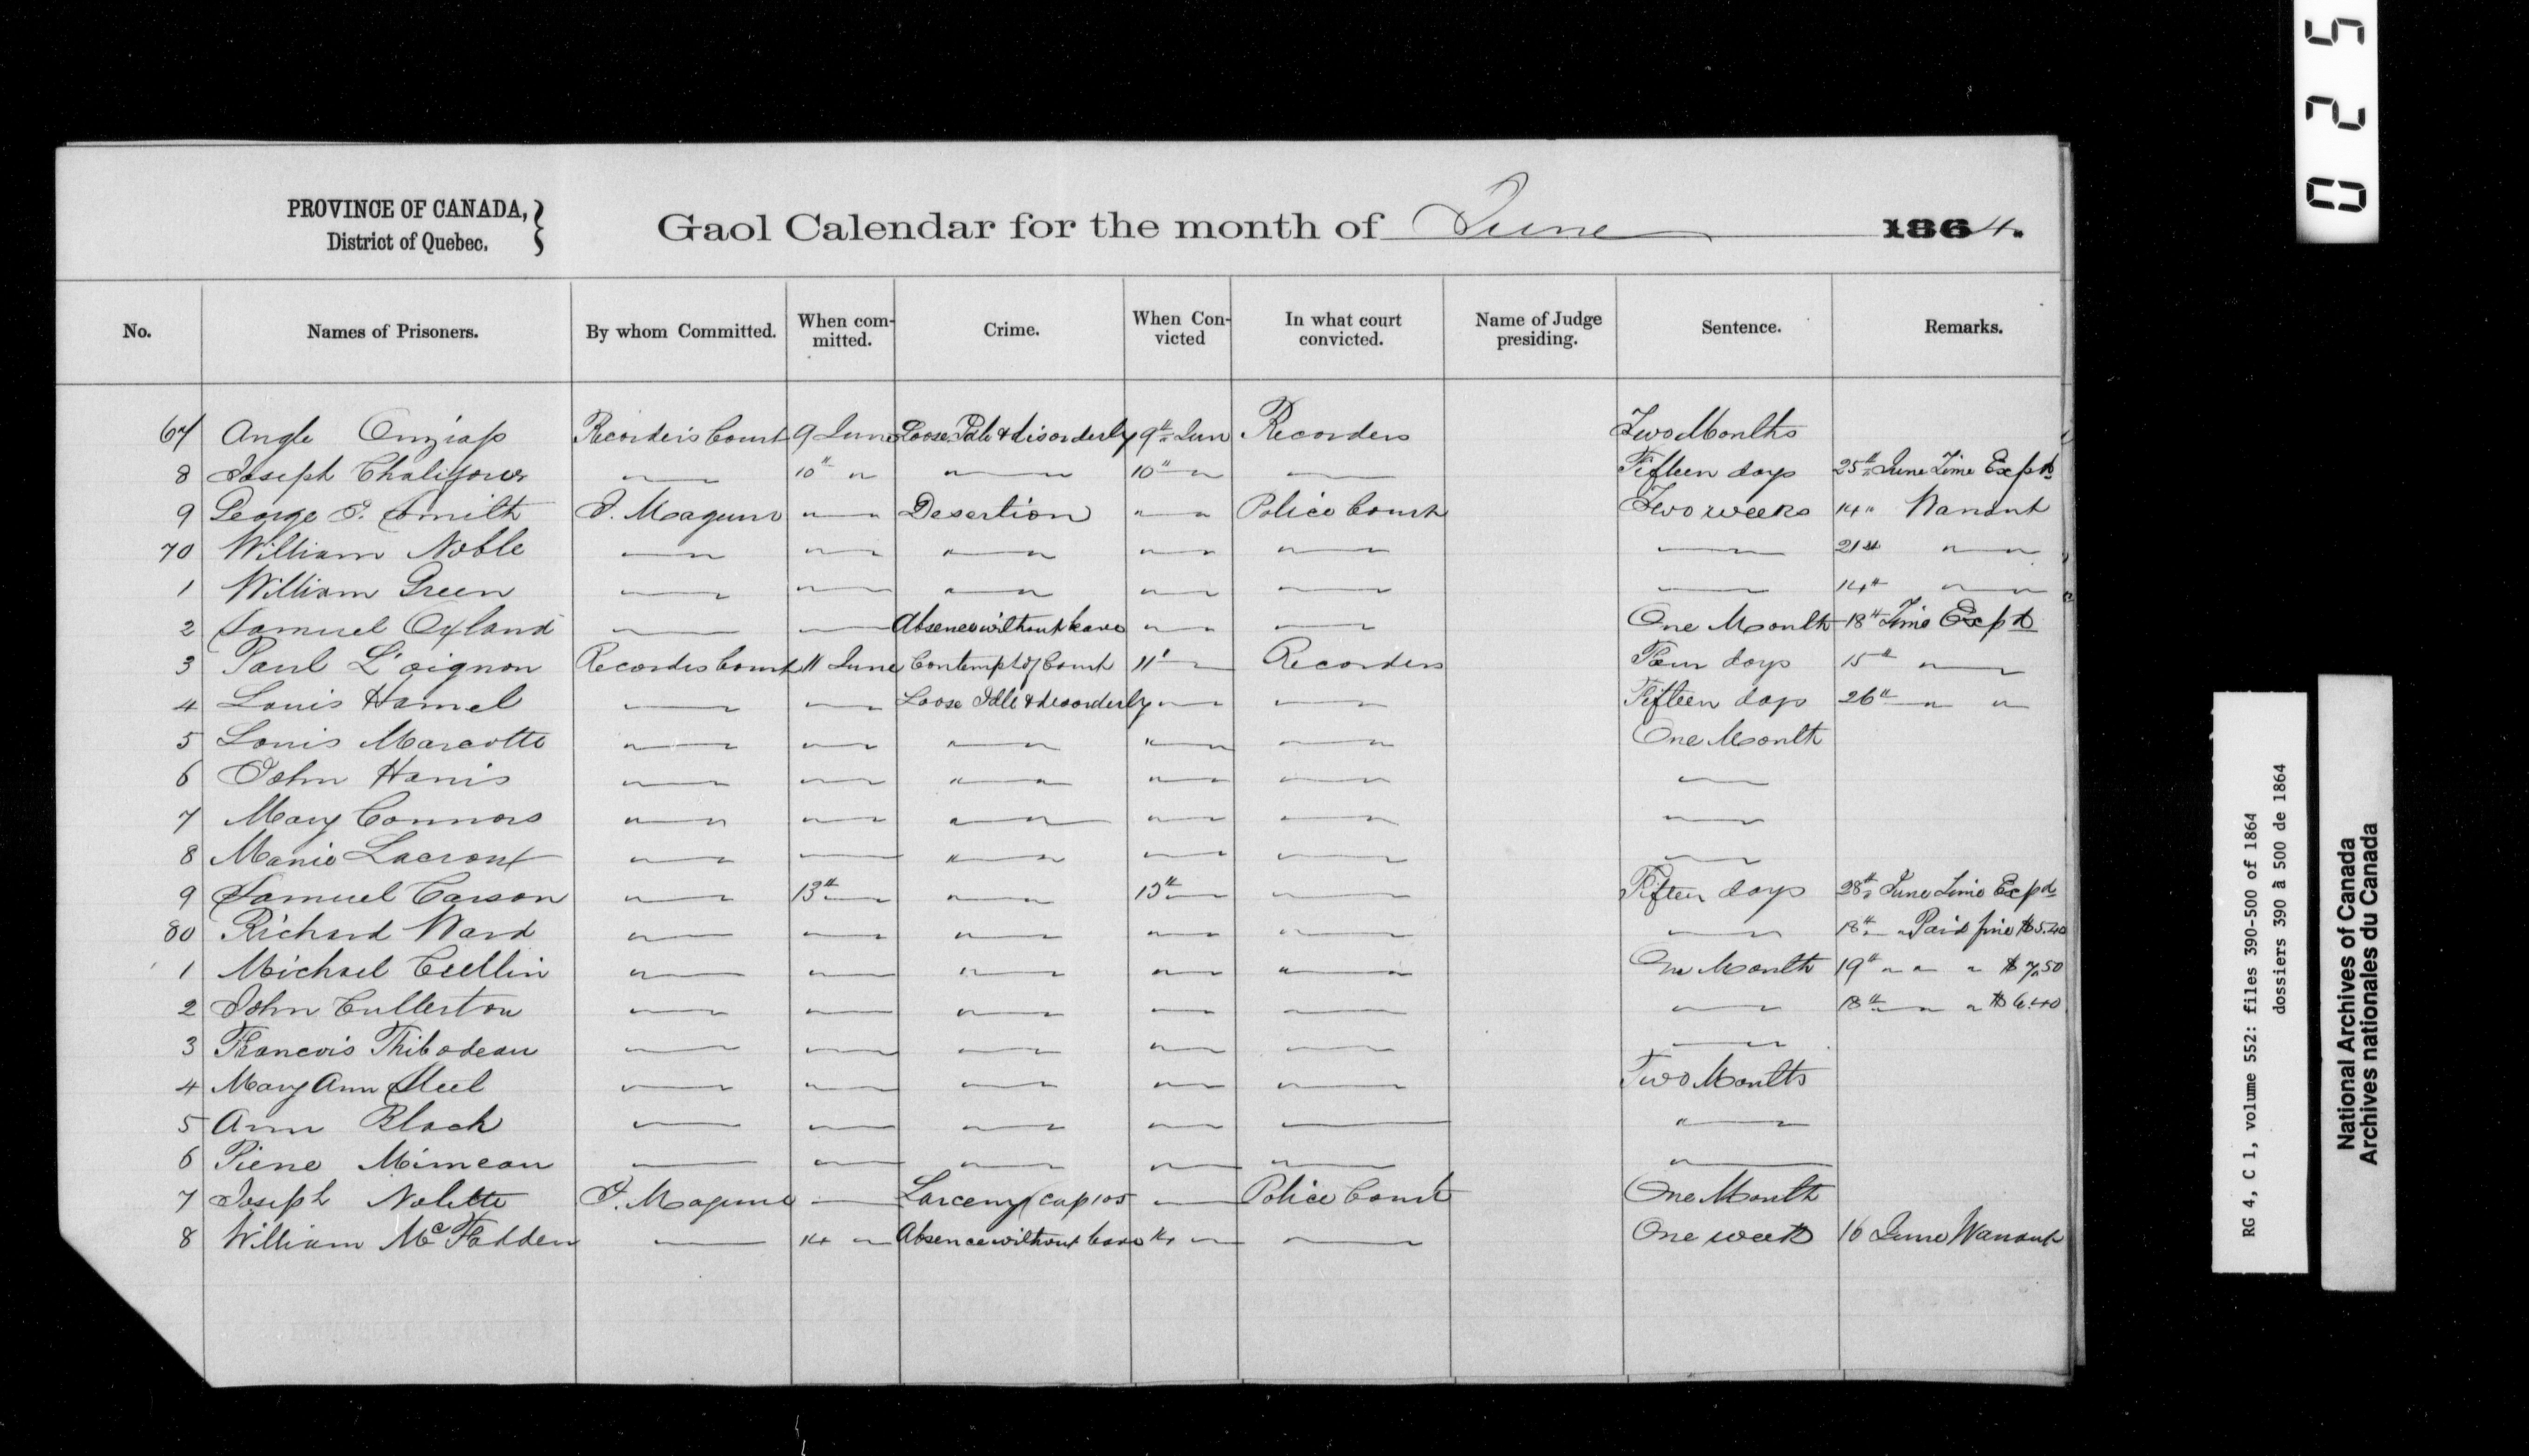 PROVINCE OF CANADA,
District of Quebec.
Gaol Calendar for the month of June 1864.
No. Names of Prisoners. By whom Committed. When committed. Crime. When Convicted In what court convicted. Name of Judge presiding. Sentence. Remarks.
67 Angle Recorders Court 9 June Loose Idle & disorderly 9th Jun Recorders Two Months
8 Joseph Chalifour — " 10th " " — " 10th " — Fifteen days 25th June Time Expd
9 George S. Smith J. Maguire " — " Desertion " — " Police Court Two weeks 14 " Warrant
70 William Noble — " " — " " — " " — " " — " — 21st " — "
1 William Green — " " — " " — " " — " — — 14th " — "
2 Samuel Oxland — — Absence without leave " — " — One Month 18th Time Expd
3 Paul L'oignon Recorders Court 11 June Contempt of Court 11 " Recorders Four days 15th " — "
4 Louis Hamel — " — Loose Idle & disorderly " — " — Fifteen days 26th — " "
5 Louis Marcotte " — " " — " " — " " — " — One Month
6 John Harris " — " " — " " — " " — " — —
7 Mary Connors " — " " — " " — " " — " — —
8 Marie Lacroux " — " — " — " " — " — —
9 Samuel Carson " — " 13th — " — " 13th — — Fifteen days 28th June Time Expd
80 Richard Ward " — " " — " " — " " — " — — 18th — " Paid fine $5.40
1 Michael Cullin " — " " — " " — " " — " " — " One Month 19th " " " $7.50
2 John Cullerton " — " " — " " — " " — " — — 18th — " " $6.40
3 Francois Thibodeau — " " — " " — " " — " — —
4 Mary Ann Steel — " " — " " — " " — " " — " Two Months
5 Ann Black — " — " — " " — " — " — "
6 Piere Mimeau — " — " — " " — " — " —
7 Joseph Nolette J. Maguire — Larceny cap 105 — Police Court One Month
8 William McFadden — 14 " Absence without leave 14 " — One week 16 June Warrant
025
RG 4, C 1, volume 552: files 390-500 of 1864
dossiers 390 à 500 de 1864
National Archives of Canada
Archives nationales du Canada